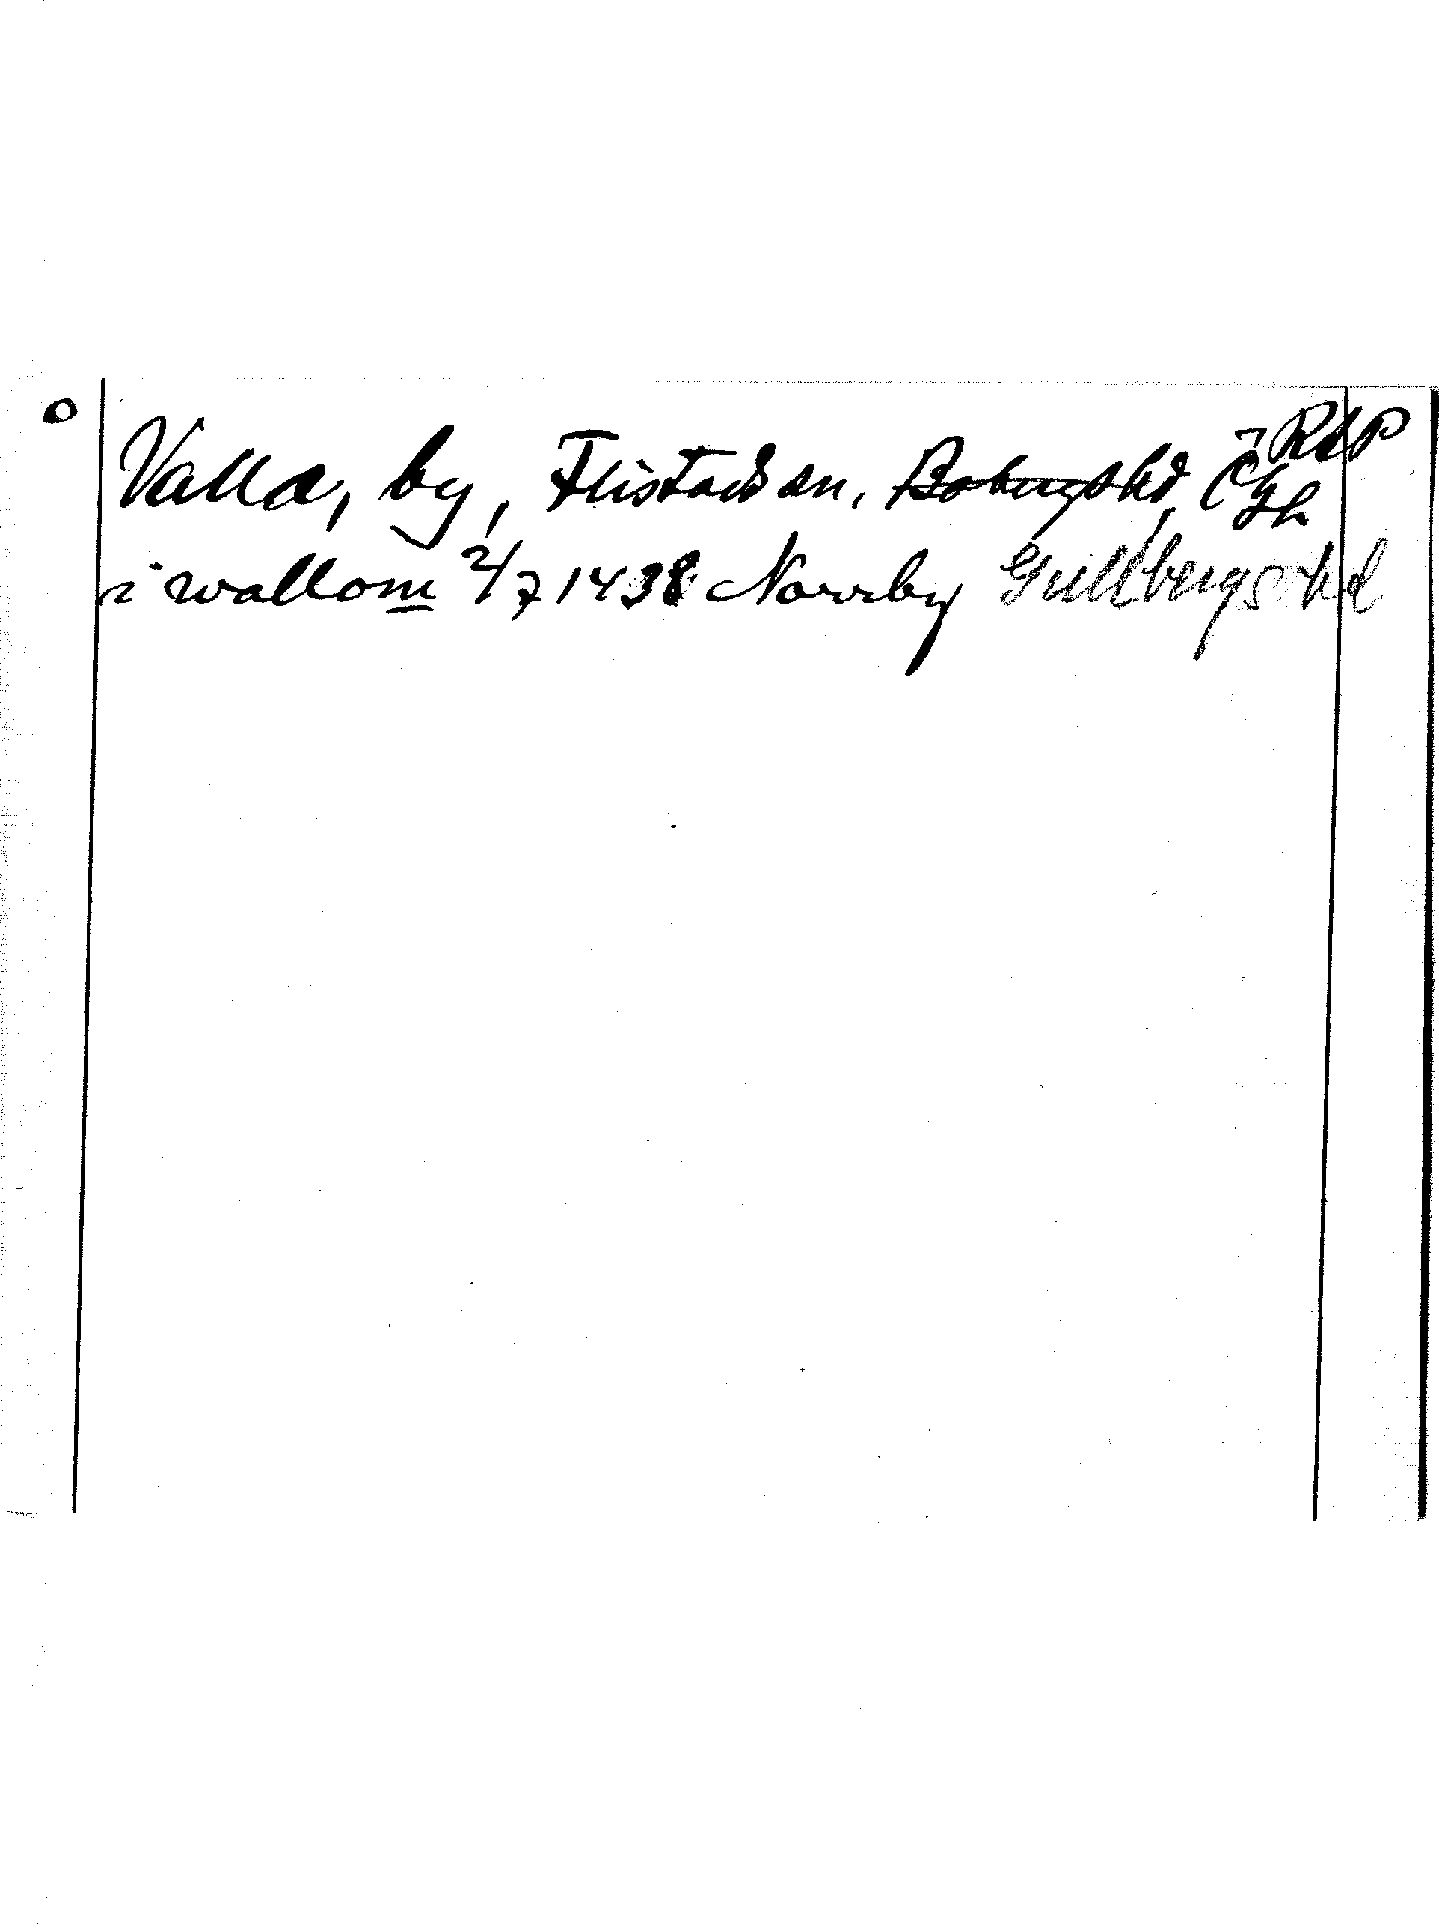 Valla, by, Flistads sn, Bobergs hd, Ög RAP
i wallom 2/7 1438 Norrby Gullbergs hd